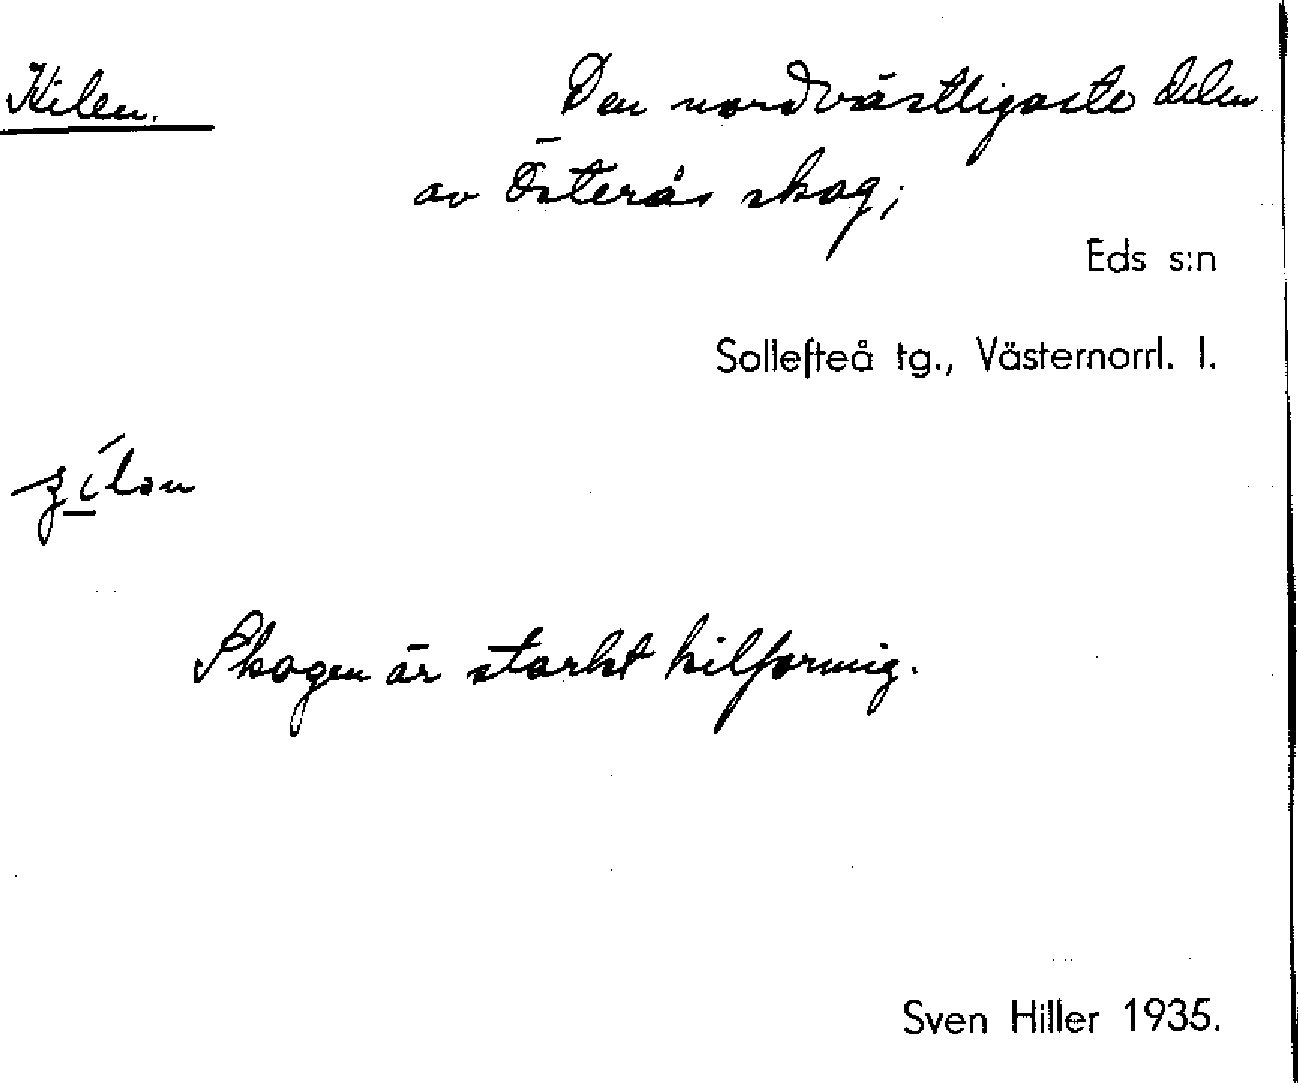 Kilen. Den nordvästligaste delen
av Österås skog;
Eds s:n
Sollefteå tg., Västernorrl. l.
Skogen är starkt kilformig.
Sven Hiller 1935.